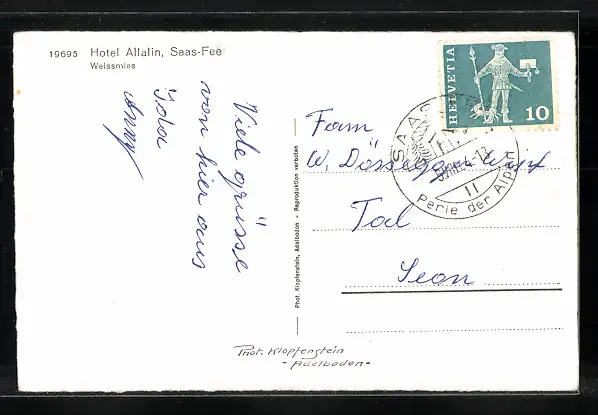 19695 Hotel Allalin, Saas-Fee
Weissmies
Viele grüsse
von hier aus
Ida
Anny
Phot. Klopfenstein, Adelboden - Reproduktion verboten
HELVETIA
10
SAAS
Perle der Alpen
Fam
W. Dössegger-Wirf
Tal
Seon
Phot. Klopfenstein
- Adelboden -